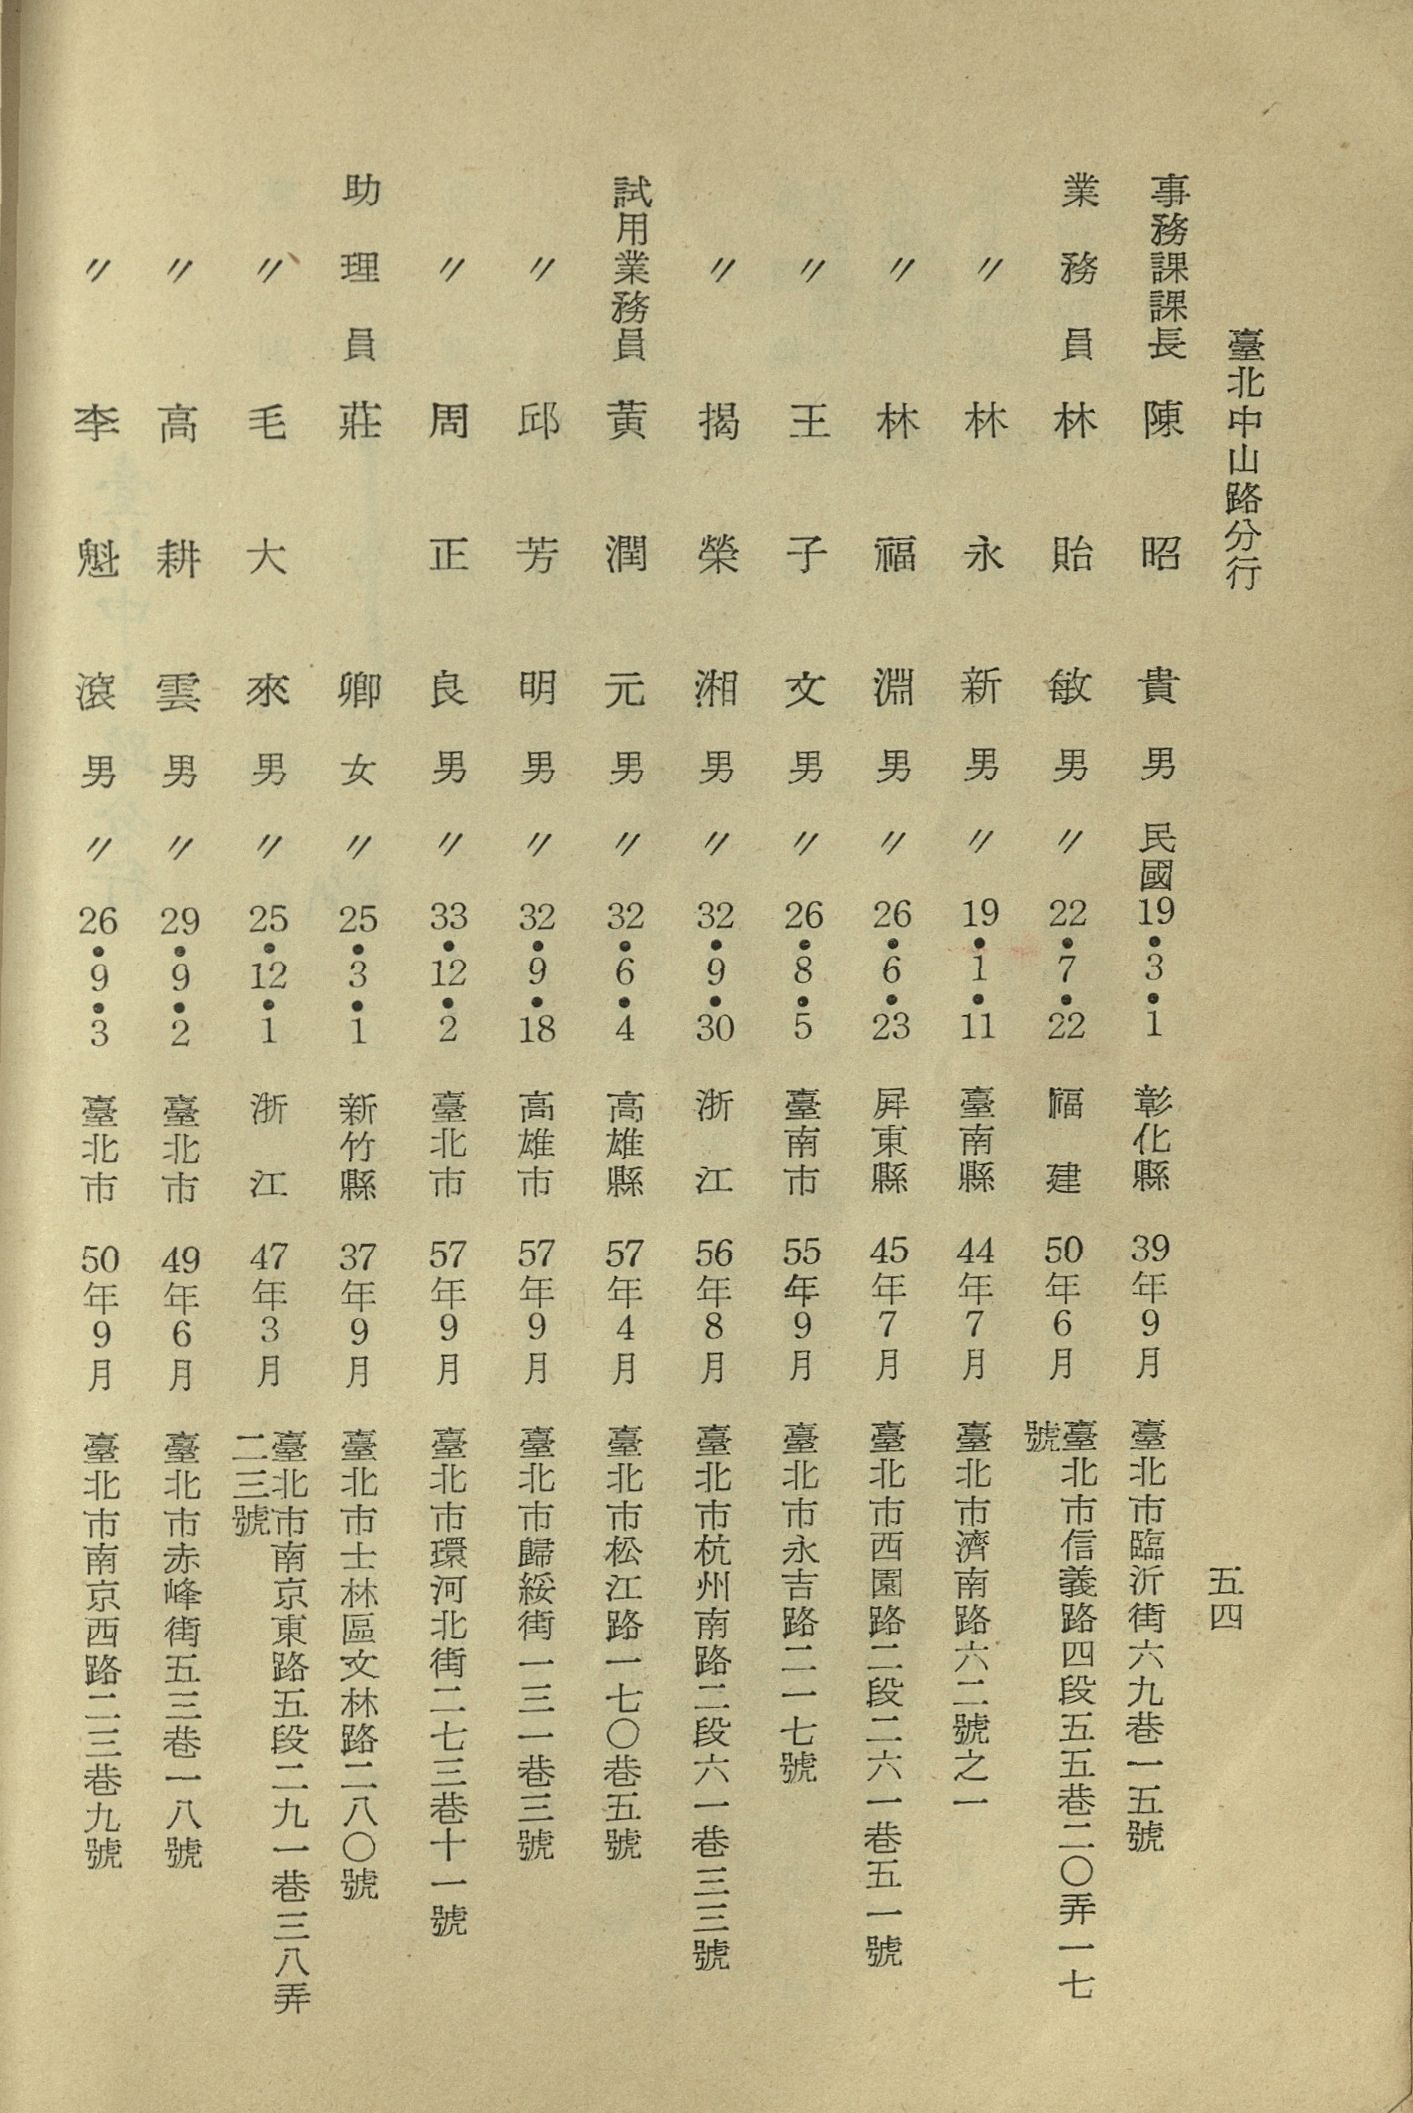 臺北中山路分行
五四
事務課課長 陳昭貴 男 民國19•3•1 彰化縣 39年9月 臺北市臨沂街六九巷一五號
業務員 林貽敏 男 〃22•7•22 福建 50年6月 臺北市信義路四段五五巷二〇弄一七
號
〃 林永新 男 〃19•1•11 臺南縣 44年7月 臺北市濟南路六二號之一
〃 林福淵 男 〃26•6•23 屏東縣 45年7月 臺北市西園路二段二六一巷五一號
〃 王子文 男 〃26•8•5 臺南市 55年9月 臺北市永吉路二一七號
〃 揭榮湘 男 〃32•9•30 浙江 56年8月 臺北市杭州南路二段六一巷三三號
試用業務員 黃潤元 男 〃32•6•4 高雄縣 57年4月 臺北市松江路一七〇巷五號
〃 邱芳明 男 〃32•9•18 高雄市 57年9月 臺北市歸綏街一三一巷三號
〃 周正良 男 〃33•12•2 臺北市 57年9月 臺北市環河北街二七三巷十一號
助理員 莊卿 女 〃25•3•1 新竹縣 37年9月 臺北市士林區文林路二八〇號
〃 毛大來 男 〃25•12•1 浙江 47年3月 臺北市南京東路五段二九一巷三八弄
二三號
〃 高耕雲 男 〃29•9•2 臺北市 49年6月 臺北市赤峰街五三巷一八號
〃 李魁滾 男 〃26•9•3 臺北市 50年9月 臺北市南京西路二三巷九號